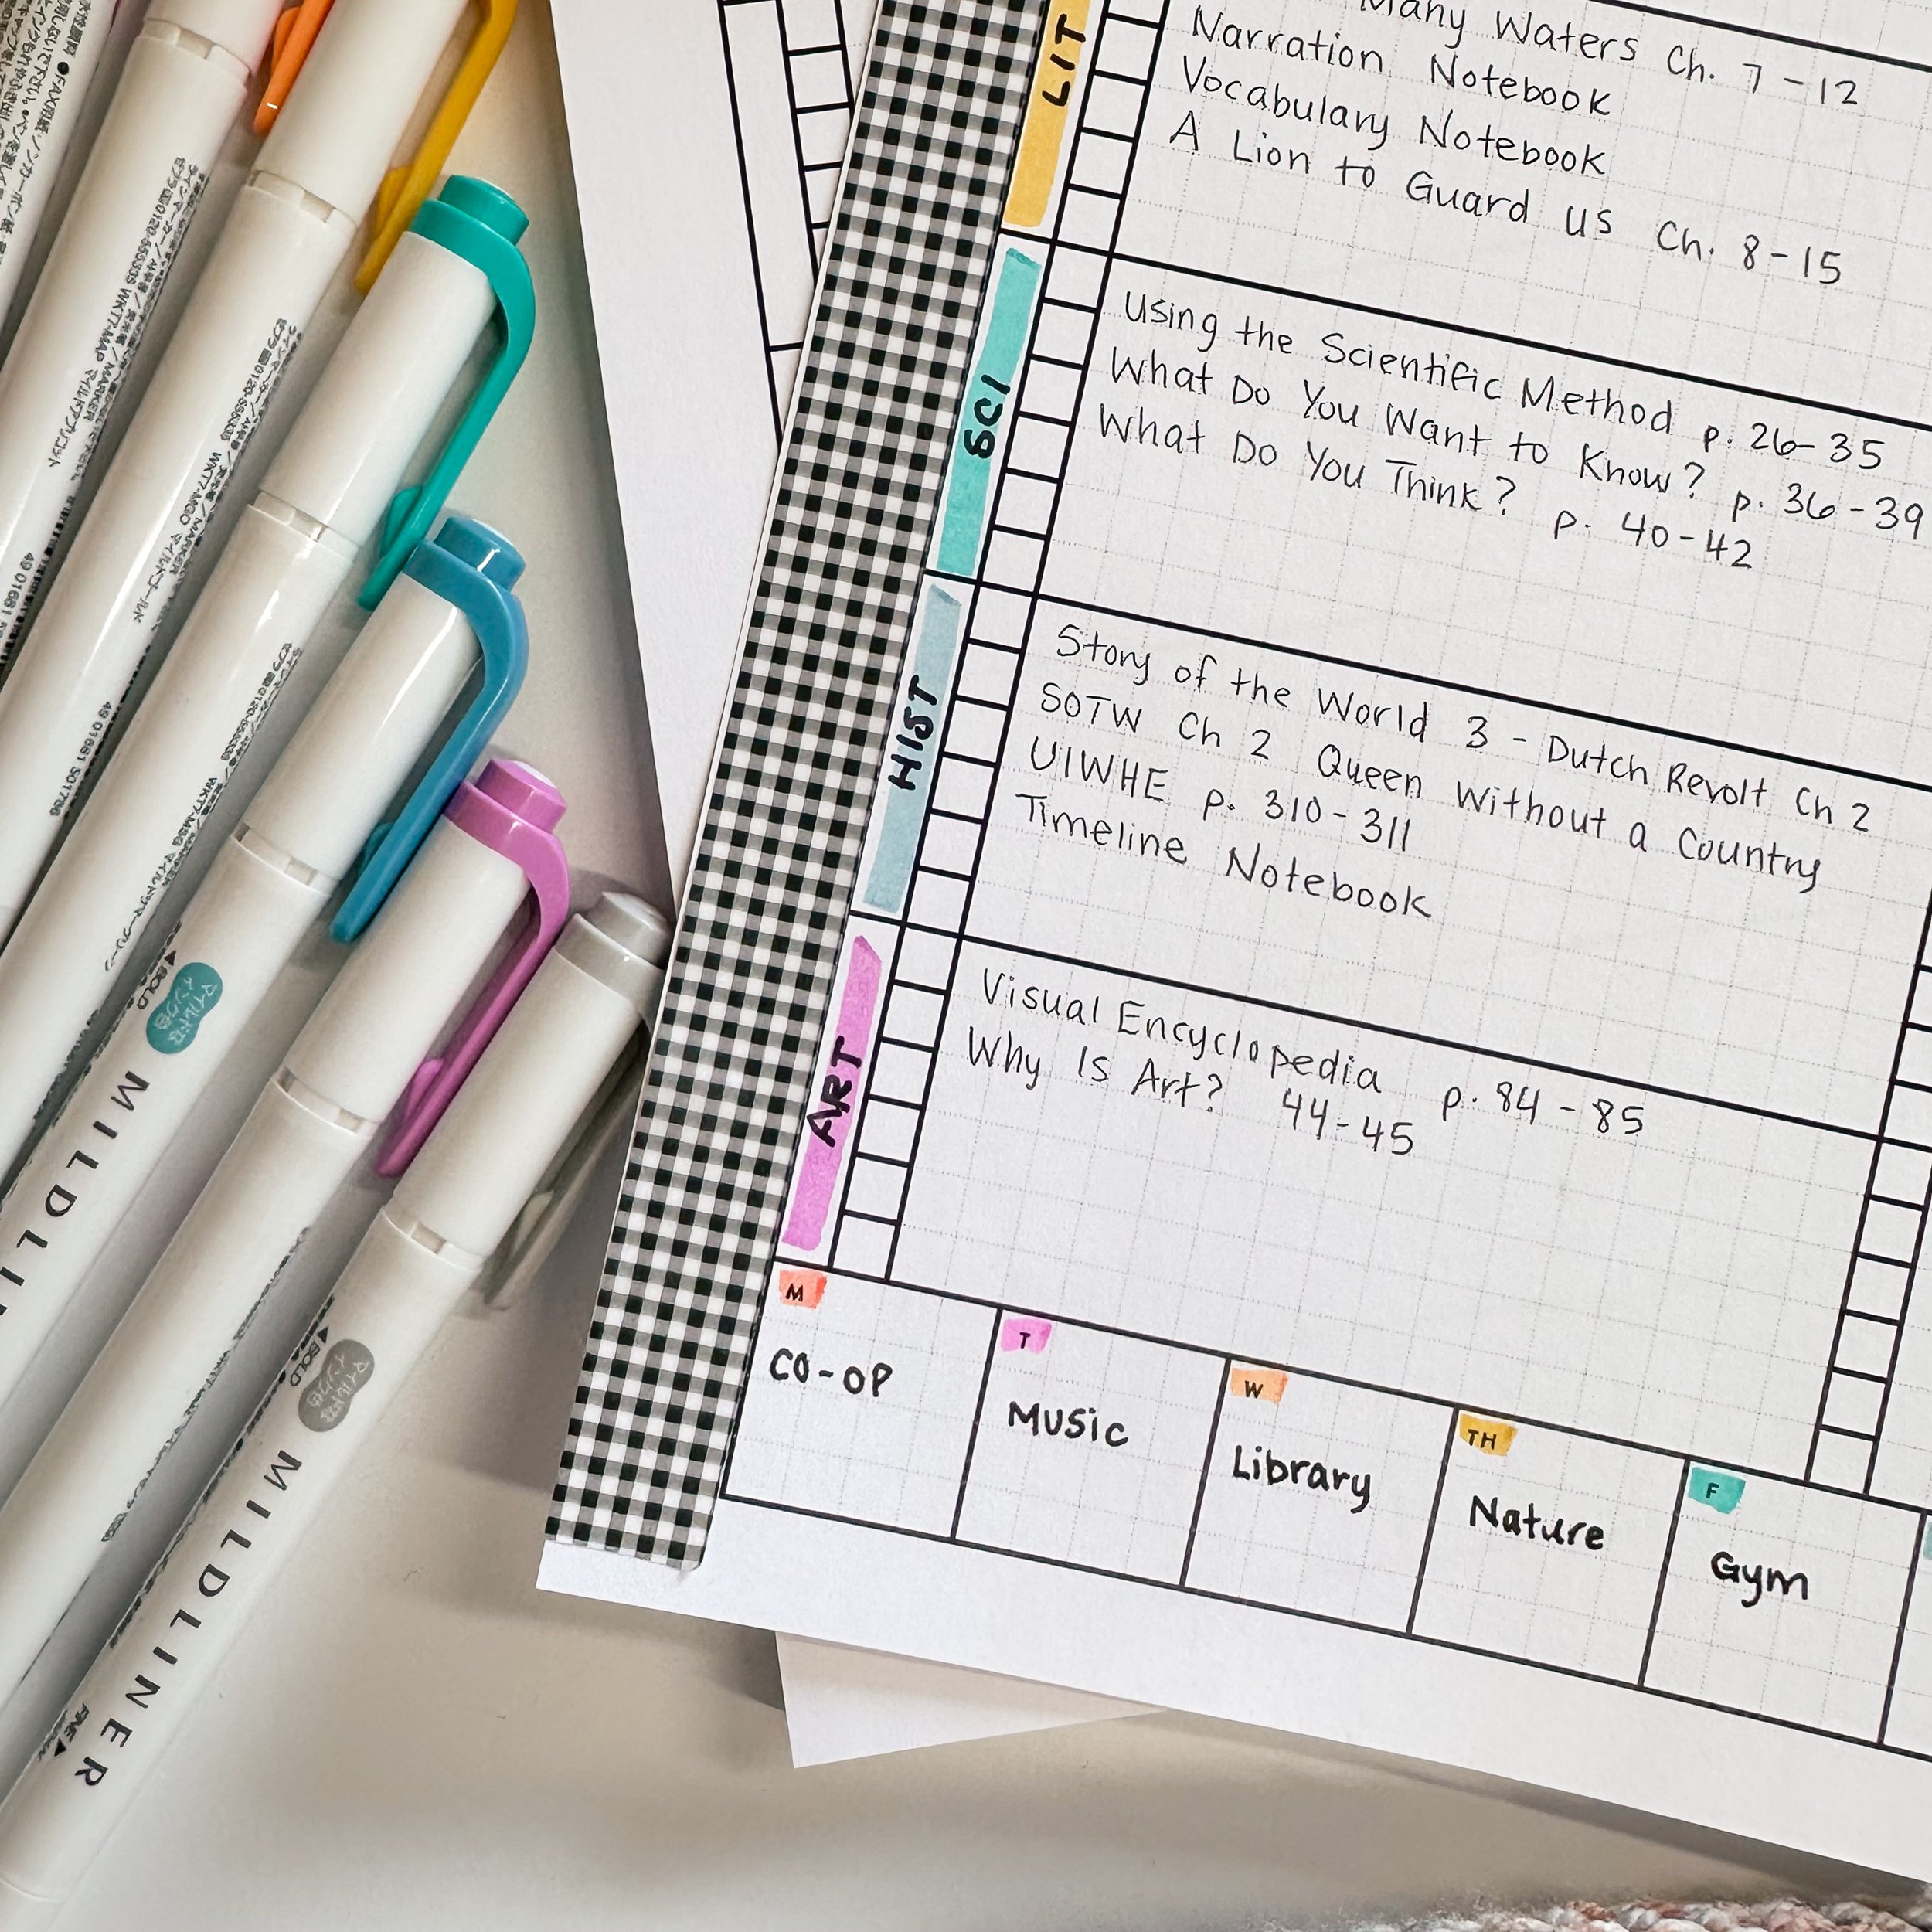 LIT
Many Waters Ch. 7-12
Narration Notebook
Vocabulary Notebook
A Lion to Guard us Ch. 8-15
SCI
Using the Scientific Method p. 26-35
What Do You Want to Know? p. 36-39
What Do You Think? p. 40-42
HIST
Story of the World 3 - Dutch Revolt Ch 2
SOTW Ch 2 Queen Without a Country
UIWHE p. 310-311
Timeline Notebook
ART
Visual Encyclopedia p. 84-85
Why Is Art? 44-45
M
CO-OP
T
Music
W
Library
TH
Nature
F
Gym
BOLD
マイルドな
インク色
MILDLI
BOLD
マイルドな
インク色
MILDLINER
FINE
WKT7-MAP マイルドアプリコット
WKT7-MGO マイルドゴールド